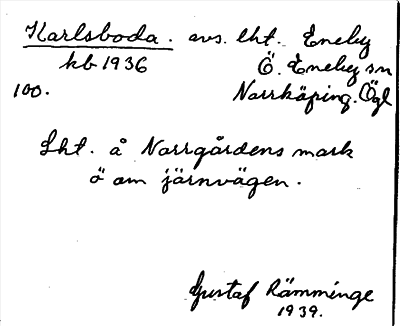 Karlsboda. avs. lht. Eneby
kb 1936 Ö. Eneby sn
100. Norrköping. Ögl
Lht. å Norrgårdens mark
ö om järnvägen.
Gustaf Rämminge
1939.